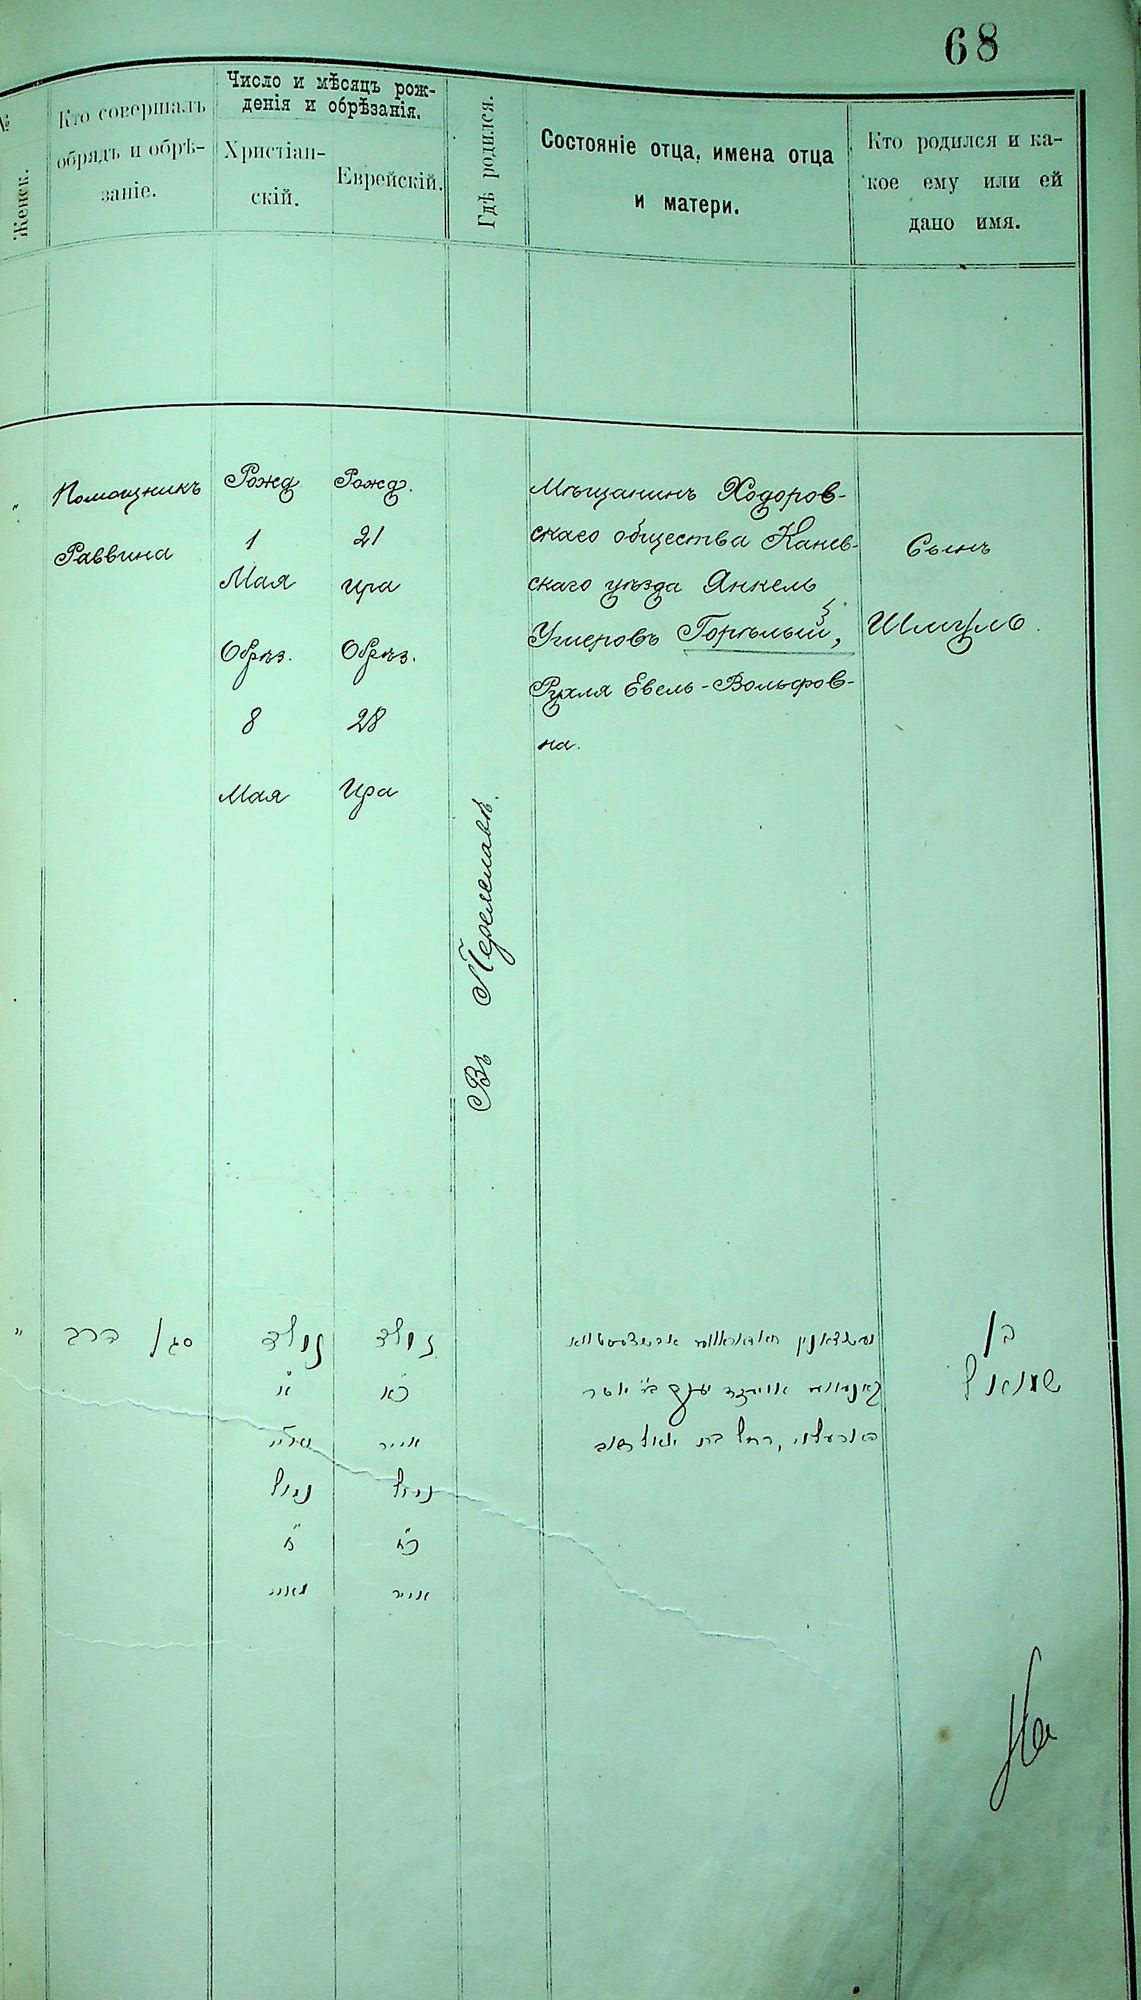 68
№
Женск.
Кто совершалъ
обрядъ и обрѣ-
заніе.
Число и мѣсяцъ рож-
денія и обрѣзанія.
Христіан-
скій.
Еврейскій.
Гдѣ родился.
Состояніе отца, имена отца
и матери.
Кто родился и ка-
кое ему или ей
дано имя.
Помощникъ
Раввина
Рожд
1
Мая
Обрѣз.
8
Мая
Рожд.
21
Ира
Обрѣз.
28
Ира
Въ Переяславѣ.
Мѣщанинъ Ходоров-
скаго общества Канев-
скаго уѣзда Янкель
Ушеровъ
Рухля Евель-Вольфов-
на.
Сынъ
Шмуль.
סגן הרב
נולד
א
מאיי
נימול
ח
מאיי
נולד
כא
אייר
נימול
כח
אייר
בן
שמואל